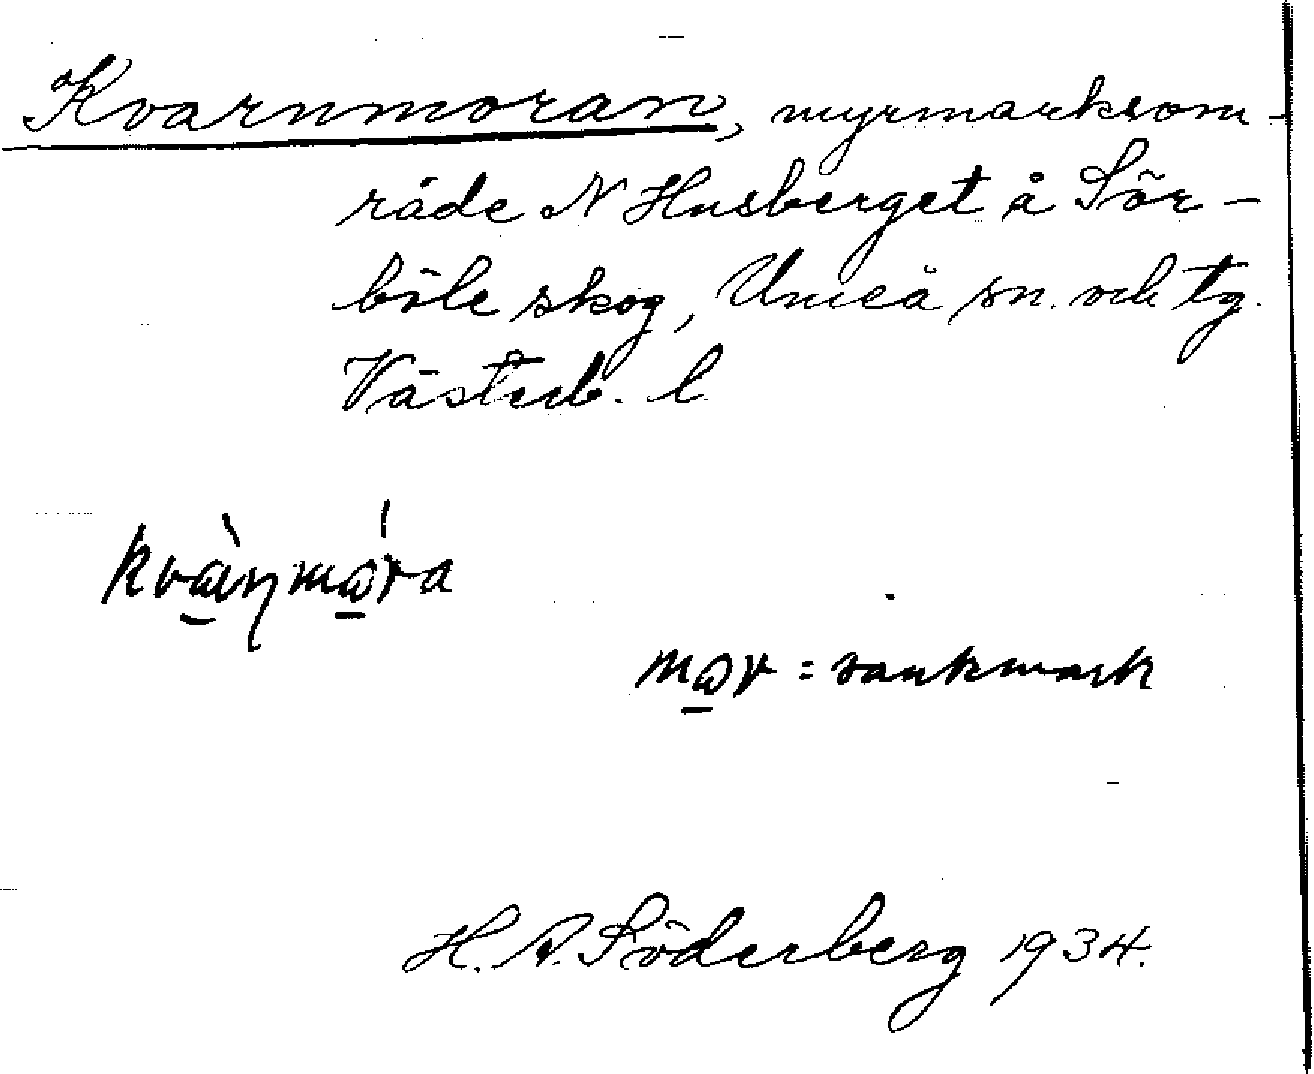 Kvarnmoran, myrmarksom-
råde N Husberget å Sör-
böle skog, Umeå sn. och tg.
Västerb. l
kvàṇmóra
mor = sankmark
H. A. Söderberg 1934.